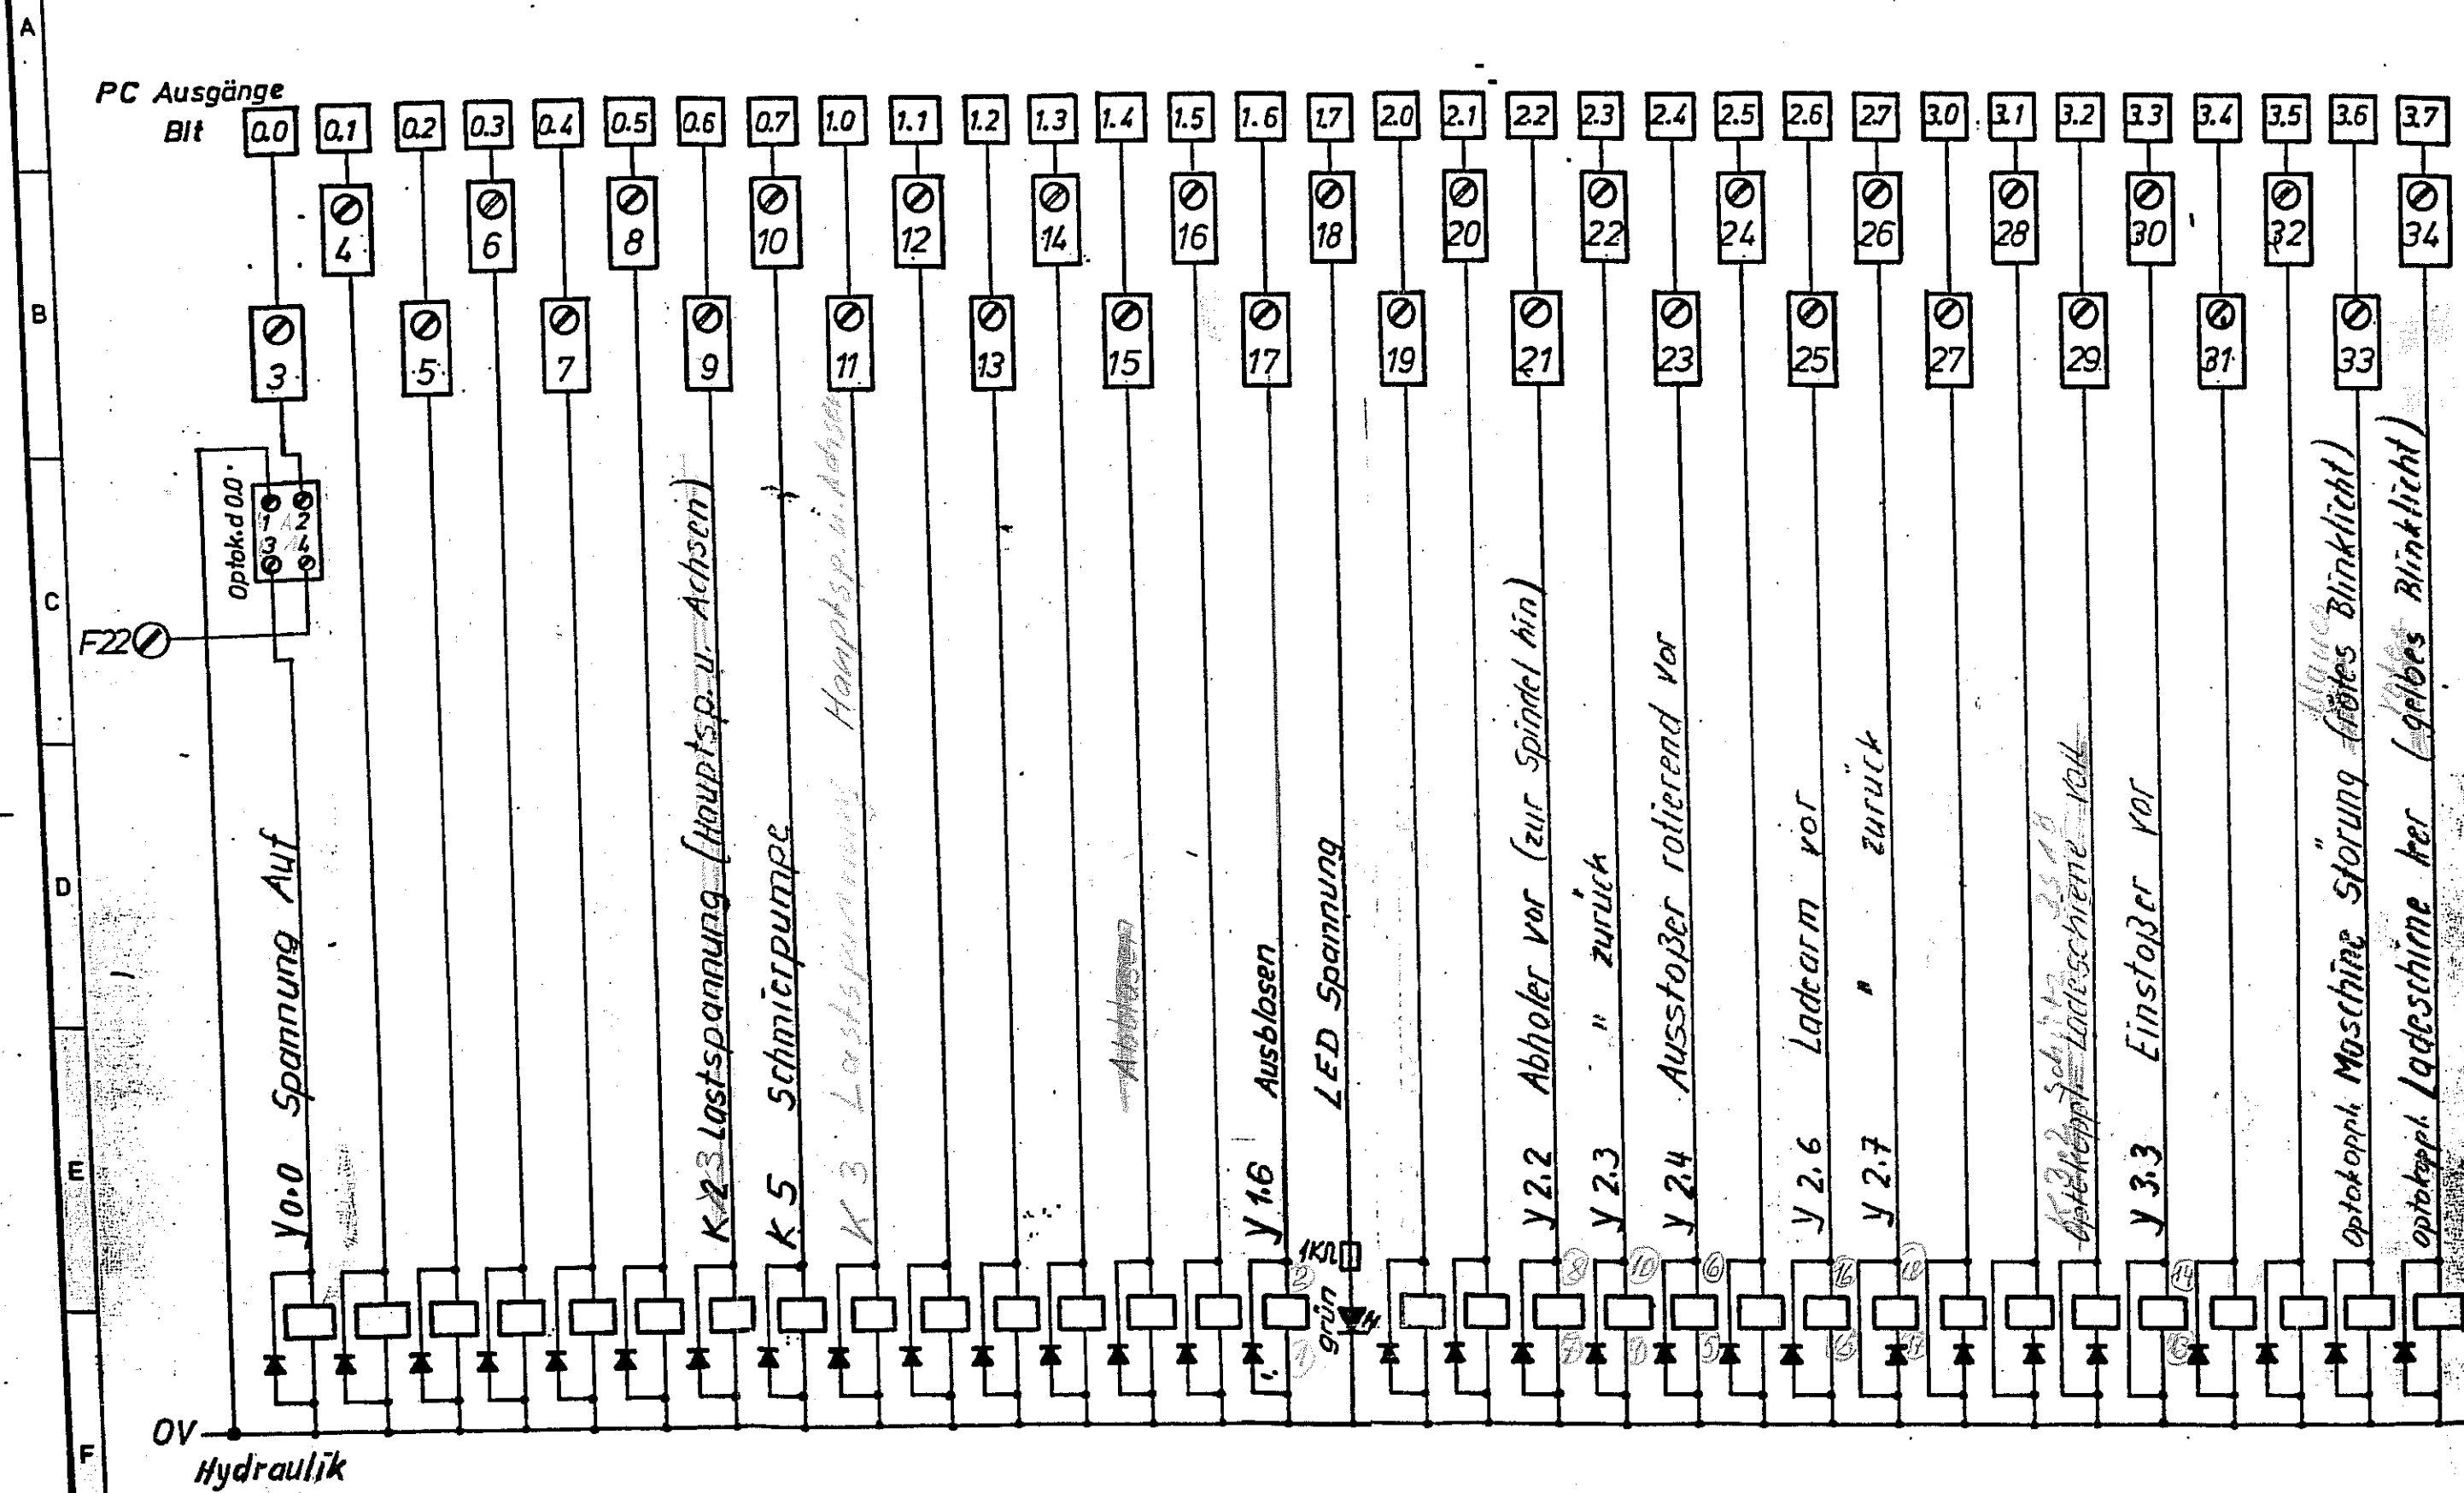 A
PC Ausgänge
Bit
0.0 0.1 0.2 0.3 0.4 0.5 0.6 0.7 1.0 1.1 1.2 1.3 1.4 1.5 1.6 1.7 2.0 2.1 2.2 2.3 2.4 2.5 2.6 2.7 3.0 3.1 3.2 3.3 3.4 3.5 3.6 3.7
4 6 8 10 12 14 16 18 20 22 24 26 28 30 32 34
B
3 5 7 9 11 13 15 17 19 21 23 25 27 29 31 33
Optok.d 0.0
1 2
3 4
C
F22
D
E
Y0.0 Spannung Auf
K 3 Lastspannung (Hauptsp. u. Achsen)
K 5 Schmierpumpe
K 3 Lastspannung Hauptsp. u. Achsen
Ausblasen
Y 1.6 Ausblasen
LED Spannung
1KΩ
grün
Y 2.2 Abholer vor (zur Spindel hin)
Y 2.3 " " zurück
Y 2.4 Ausstoßer rotierend vor
Y 2.6 Ladearm vor
Y 2.7 " zurück
Optokoppl. Ladeschiene voll
Y 3.3 Einstoßer vor
Optokoppl. Maschine Störung (rotes Blinklicht)
Optokoppl. Ladeschiene leer (gelbes Blinklicht)
8 10 6 16 18 14
2
1
7 5 17
0V
F
Hydraulik